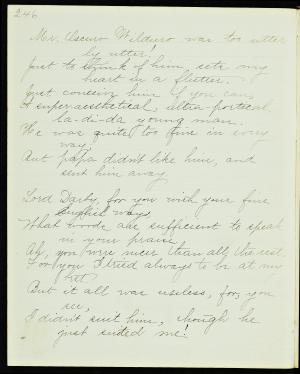 246
Mr. Oscuro Wilduro was too utter
by utter!
Just to think of him, sets my
heart in a flutter.
Just conceive him if you can,
A superaesthetical, ultra-poetical
la-di-da young man.
He was quite too fine in every
way,
But papa didn't like him, and
sent him away.
Lord Darby, for you with your fine
English ways,
What words are sufficient to speak
in your praise,
Ah, you were nicer than all the rest.
For you I tried always to be at my
But it all was useless, for, you
see,
I didn't suit him, though he
just suited me!